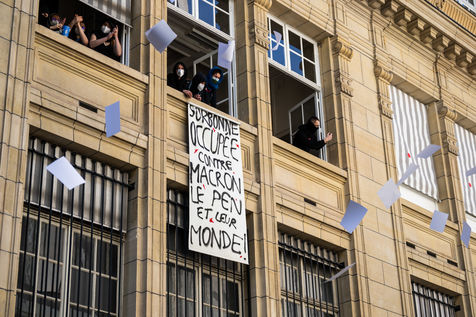 SORBONNE
OCCUPÉE
CONTRE
MACRON
LE PEN
ET LEUR
MONDE!